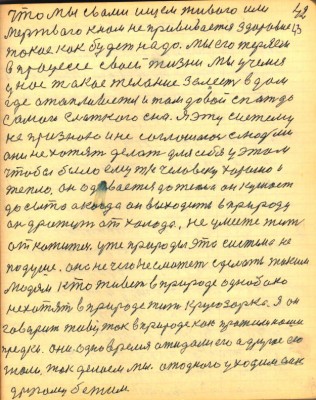 42
что мы с вами ищем живого или
мертваго к нам не прививается здоровие
такое как будет надо. Мы его теряем
в процессе своей жизни Мы учимся
у нас такое желание залезть в дом
где отапливается и там до вой спать до
самого сладкого сна. Я эту систему
не признаю и не соглошаюсь с людми
они не хотят делат для себя у этом
чтобы было ему т/e человеку хорошо и
тепло, он одевается до тела он кушает
до сыта а когда он выходит в природу
он дрожит от холода, не умеет жит
от
уже природы это система не
подуше. оно нечего не сможет сделать таким
Людям кто живет в природе однобоко
не хотят в природе жит круглосарка. Я он
говорит живи так в природе как прожили наши
предки. они одно время ожидали его а другое
гнали, так делаем мы. от одного уходим а к
другому бежим